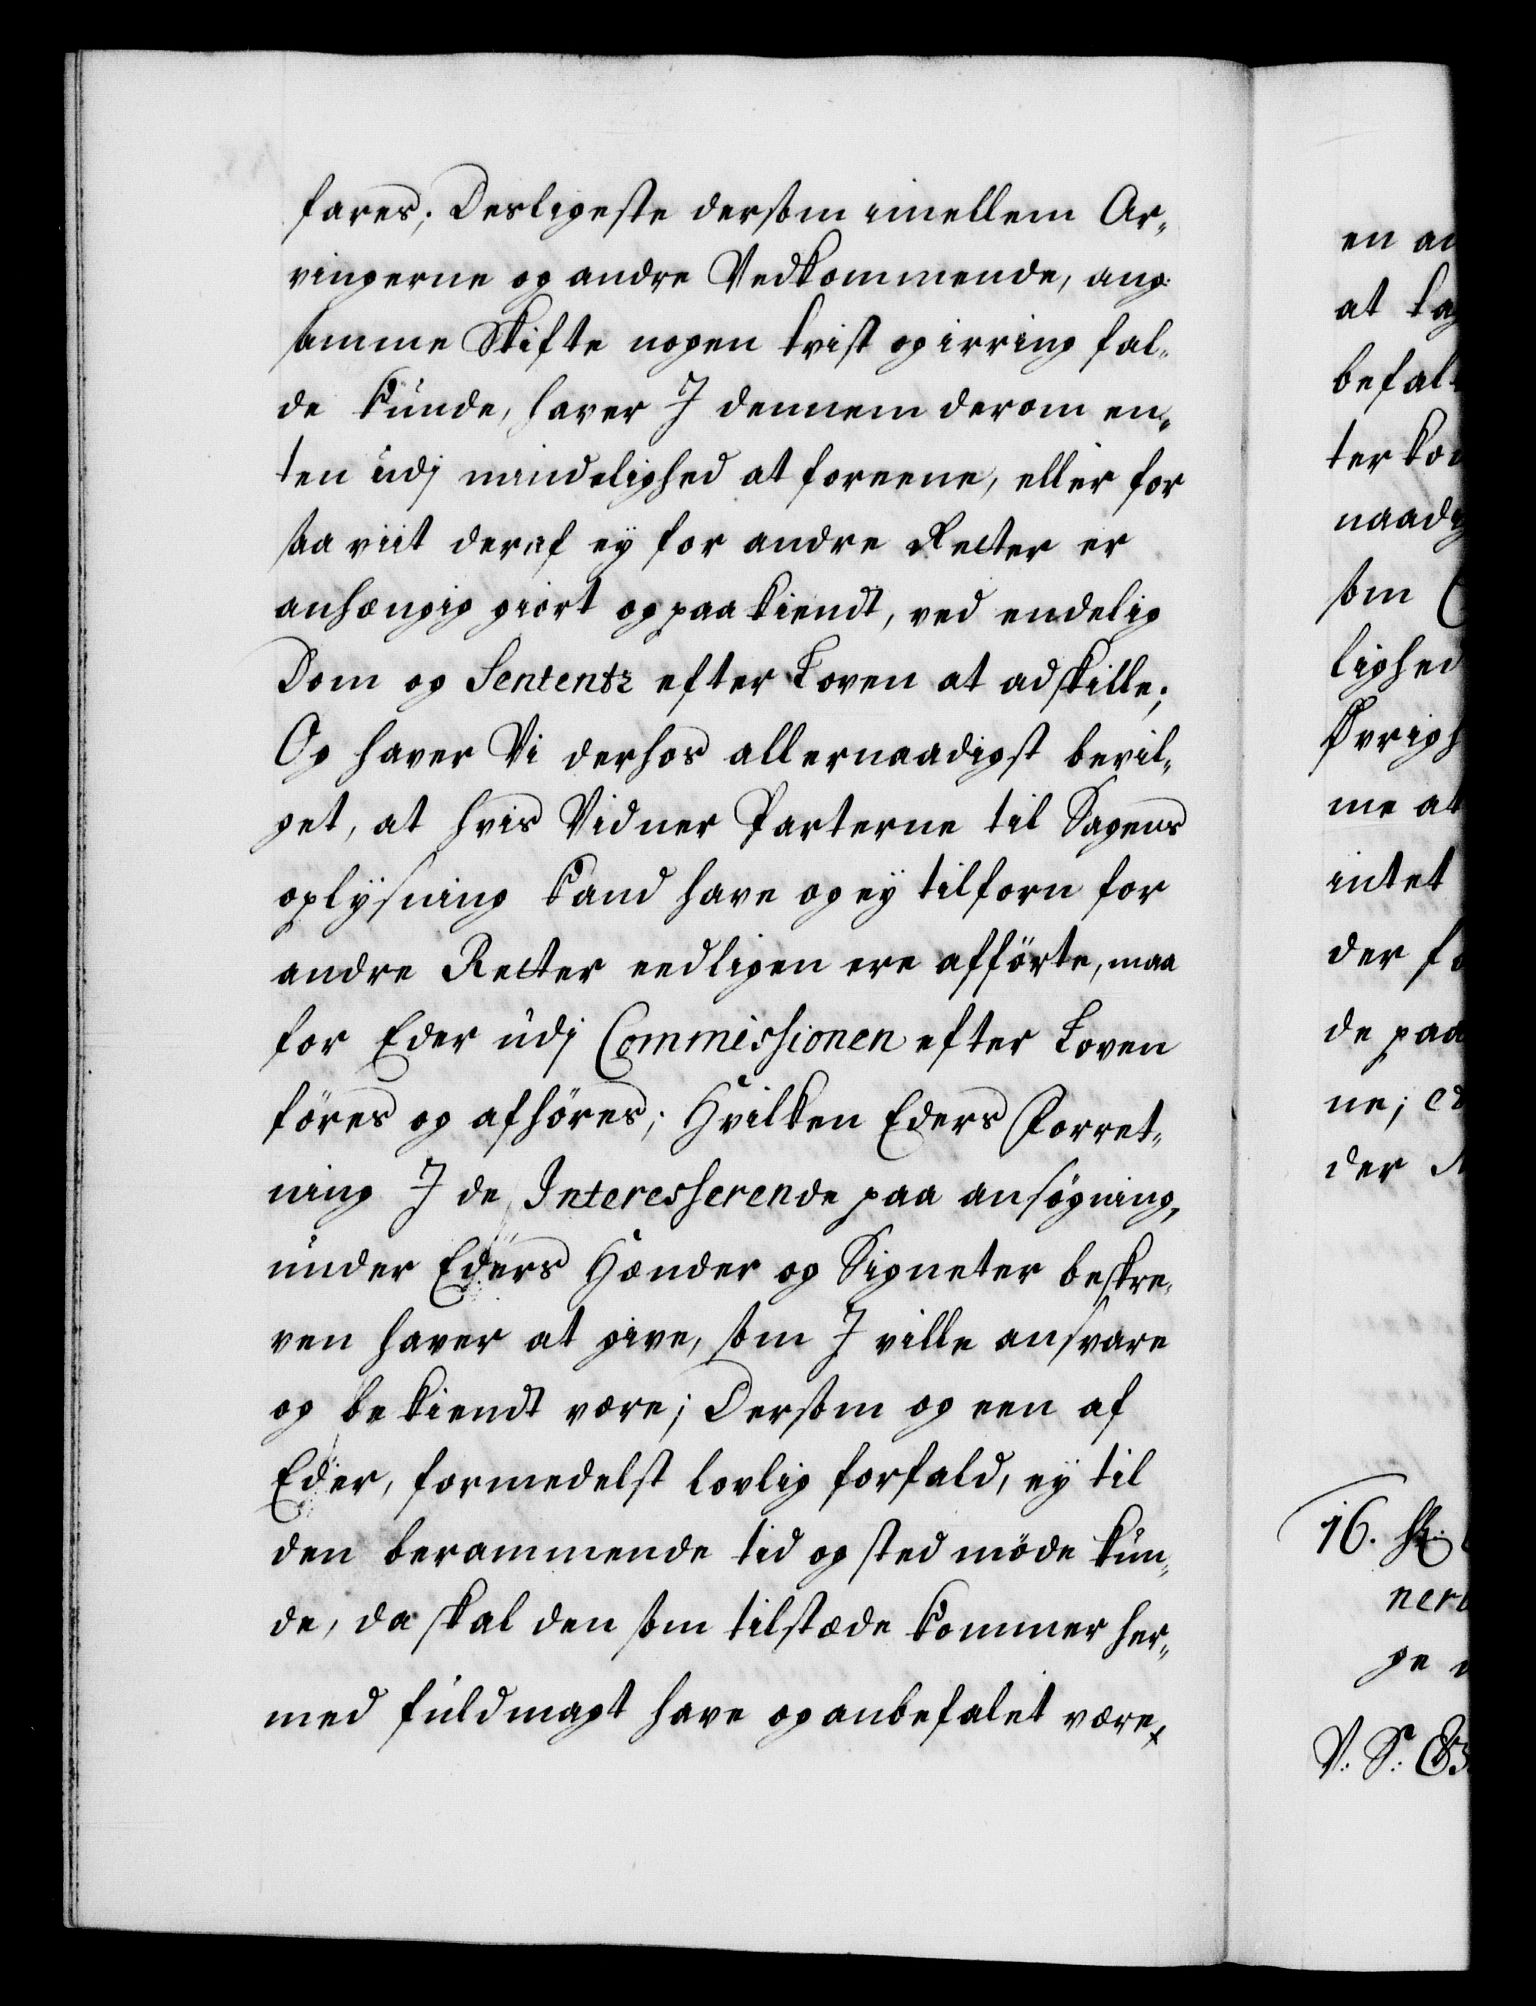 fares; Desligeste dersom imellem Ar„
vingerne og andre Vedkommende, ang:
samme Skifte nogen tvist og irring fal„
de kunde, haver I dennem derom en„
ten udj mindelighed at foreene, eller for
saa viit deraf ey for andre Retter er
anhængig giort og paakiendt, ved endelig
Dom og Sententz efter Loven at adskille;
Og haver Vi derhos allernaadigst bevil„
get, at hvis Vidner Parterne til Sagens
oplysning kand have og ey tilforn for
andre Retter eedligen ere afförte, maa
for Eder udj Commissionen efter Loven
föres og afhöres; Hvilken Eders Forret„
ning I de Interesserende paa ansögning,
under Eders Hænder og Signeter beskre„
ven haver at give, som I ville ansvare
og bekiendt være; Dersom og een af
Eder, formedelst lovlig forfald, ey til
den berammende tid og sted möde kun„
de, da skal den som tilstæde kommer her„
med fuldmagt have og anbefalet være
en
at
befal
ter
naadig
som
lighed
Øvrigh
me at
intet
der
de paa
ne;
der
16.
ge
V: S: